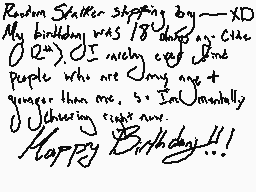 Random Stalker stopping by — XD
My birthday was 18 days ago (the
12th). I rarely ever find
people who are my age +
younger than me, so I'm mentally
cheering right now.
Happy Birthday!!!